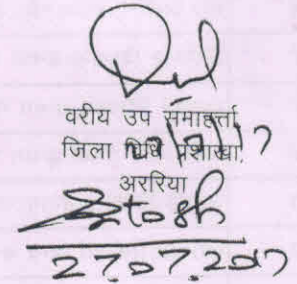 वरीय उप समाहर्त्ता
जिला विधि प्रशाखा,
अररिया
Stosh
27.07.2017